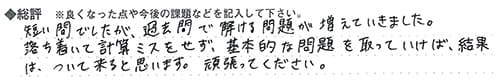 ◆総評 ※良くなった点や今後の課題などを記入して下さい。
短い間でしたが、過去問で解ける問題が増えていきました。
落ち着いて計算ミスをせず、基本的な問題を取っていけば、結果
は、ついて来ると思います。頑張ってください。